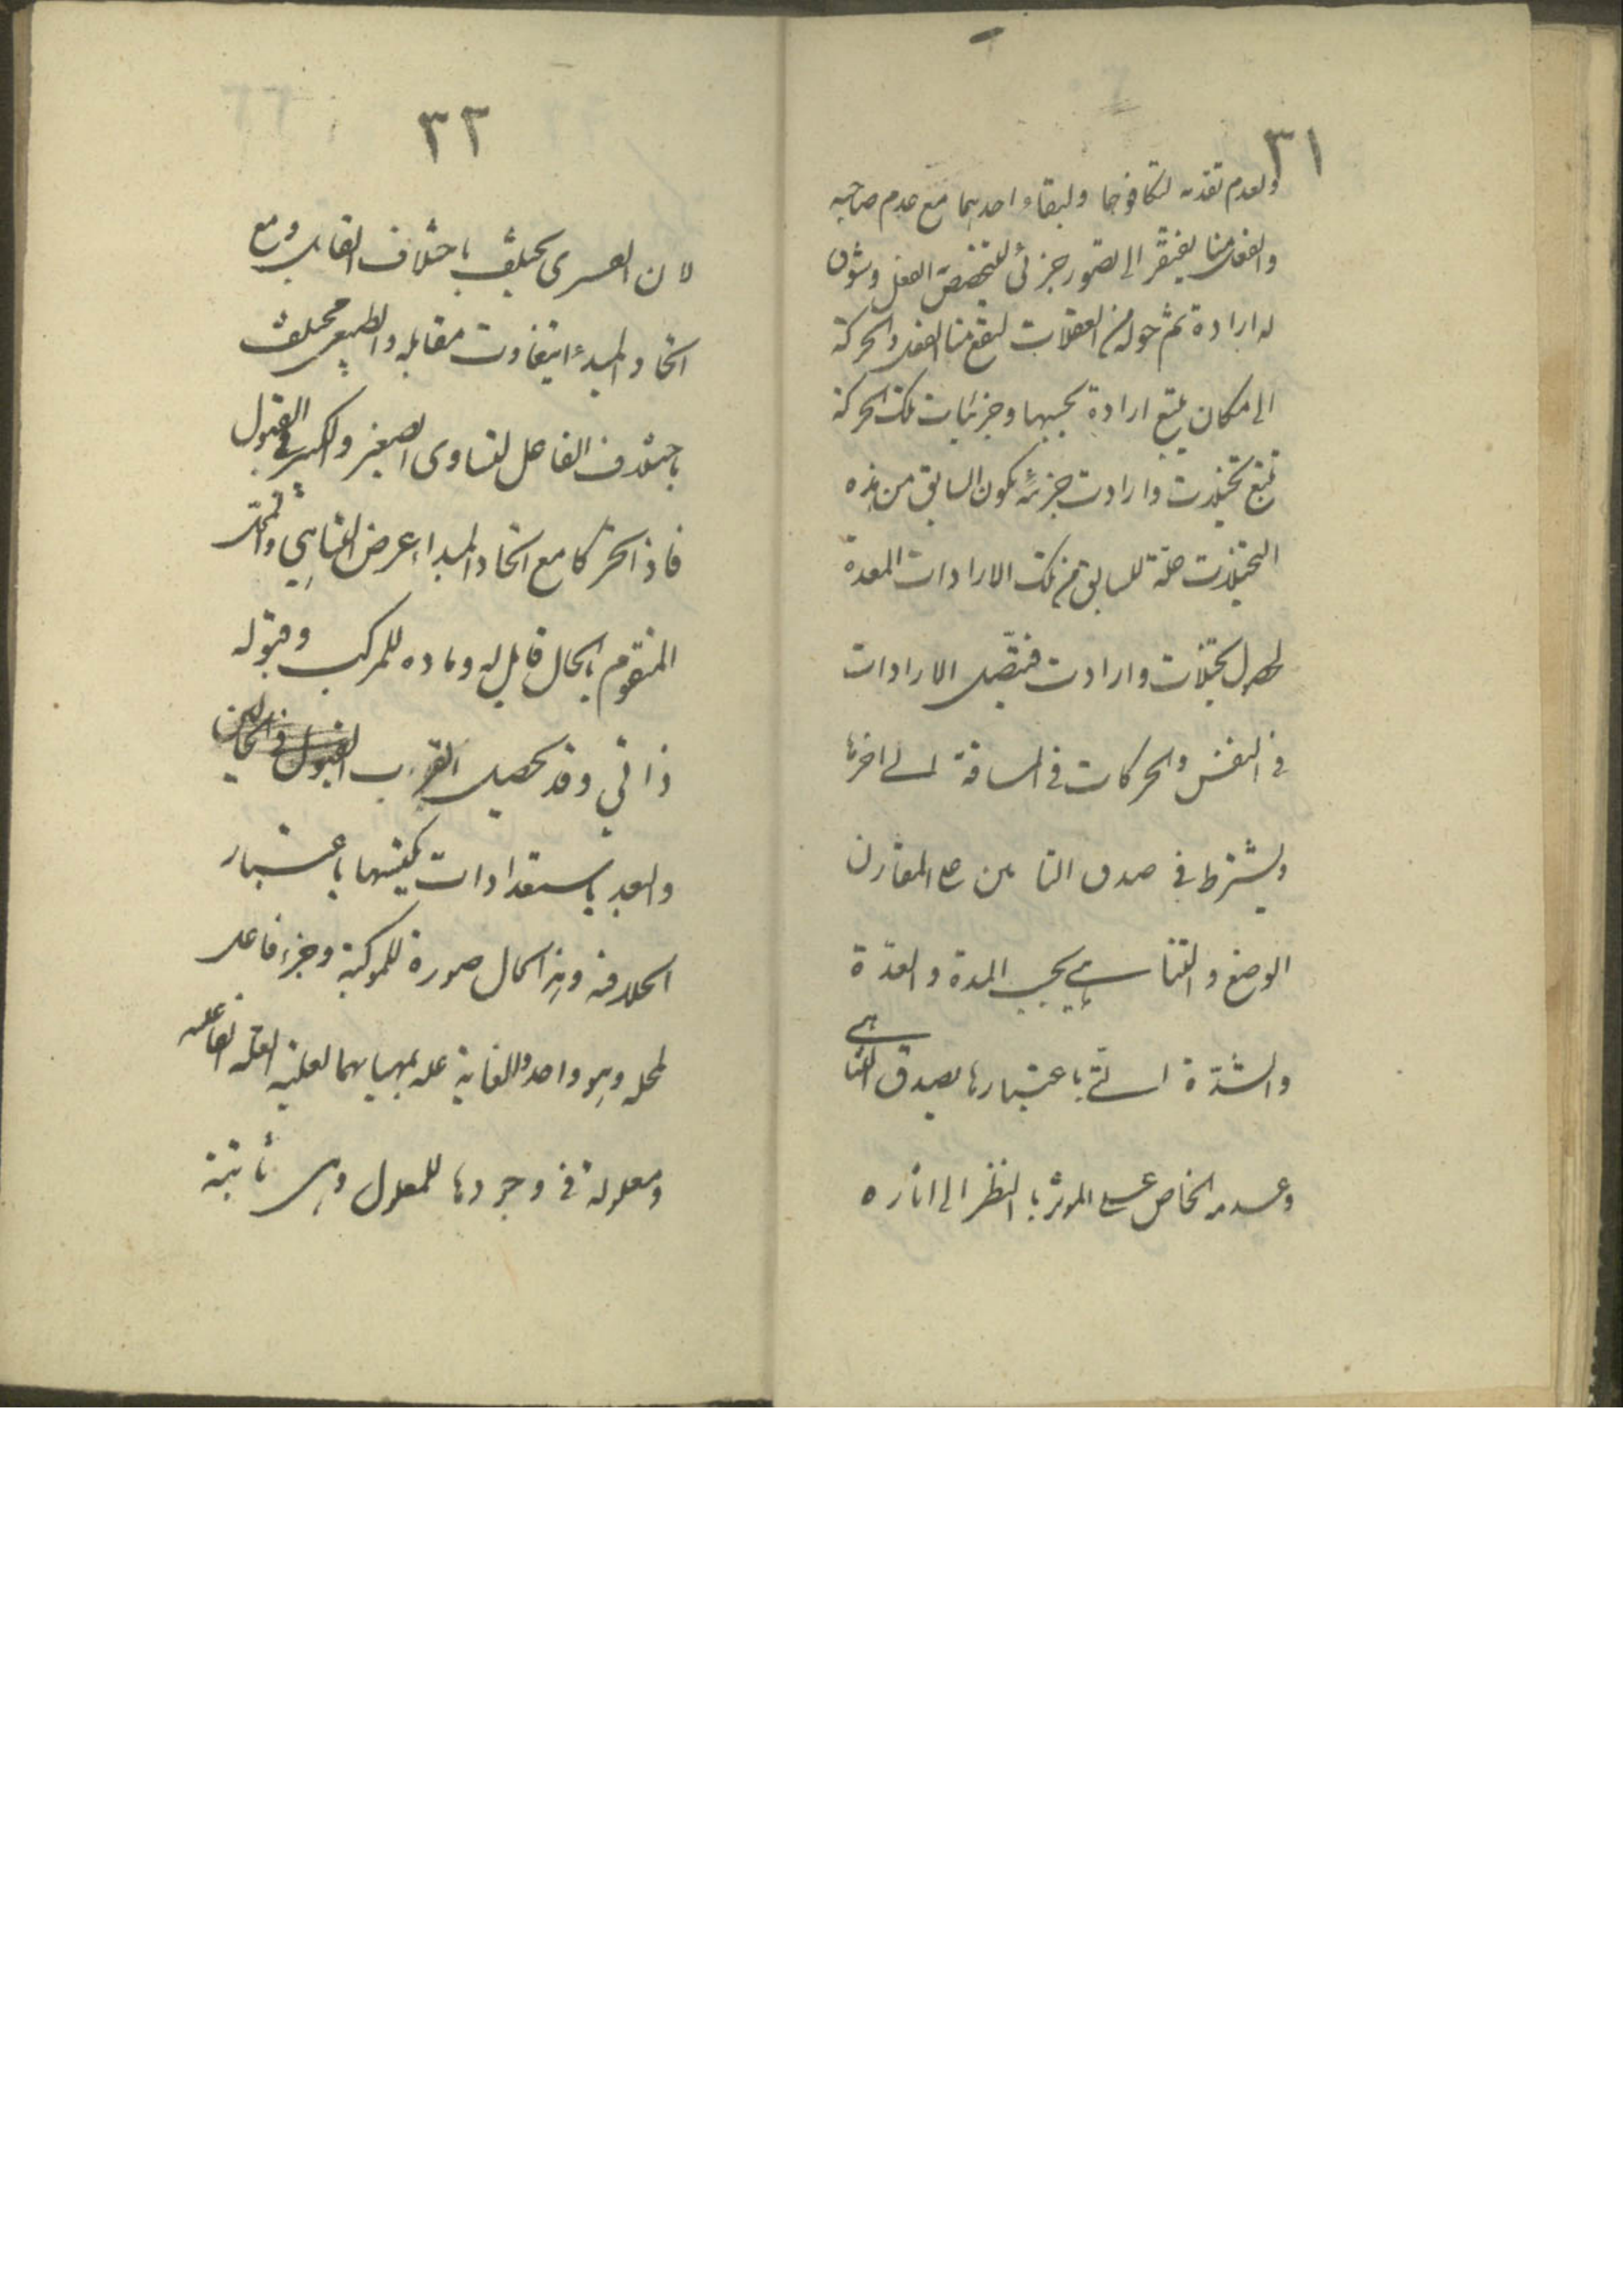 ٣١
ولعدم تقدمه لتكافوهما ولبقاء احديهما مع عدم صاحبه
والفعل منا يفتقر الى تصور جزئى ليتخصص الفعل وشوق
له ارادة ثم حركة من العضلات ليقع منا الفعل والحركة
الى مكان يتبع ارادة بحسبها وجزئيات تلك الحركة
تتبع تخيلات وارادات جزئية يكون السابق من هذه
التخيلات علة للسابق من تلك الارادات المعدة
لحصول تخيلات وارادات فتتصل الارادات
فى النفس والحركات فى المسافة الى اخرها
ويشترط فى صدق التاثير على المقارن
الوضع والتناهى بحسب المدة والعدة
والشدة التى باعتبارها يصدق التناهى
وعدمه الخاص على الموثر بالنظر الى اثاره
٣٢
لان القسرى يختلف باختلاف القابل ومع
اتحاد المبدء يتفاوت مقابله والطبيعى يختلف
باختلاف الفاعل لتساوى الصغير والكبير فى القبول
فاذا تحركا مع اتحاد المبدا عرض التناهى والمحل
المتقوم بالحال قابل له وماده للمركب وقبوله
ذاتي وقد يحصل القرب
والبعد باستعدادات يكسبها باعتبار
الحال فيه وهذا الحال صورة للمركب وجزء فاعل
لمحله وهو واحد والغاية علة بمهياتها لعلية العلة الفاعليه
ومعلولة فى وجودها للمعلول وهى ثابتة